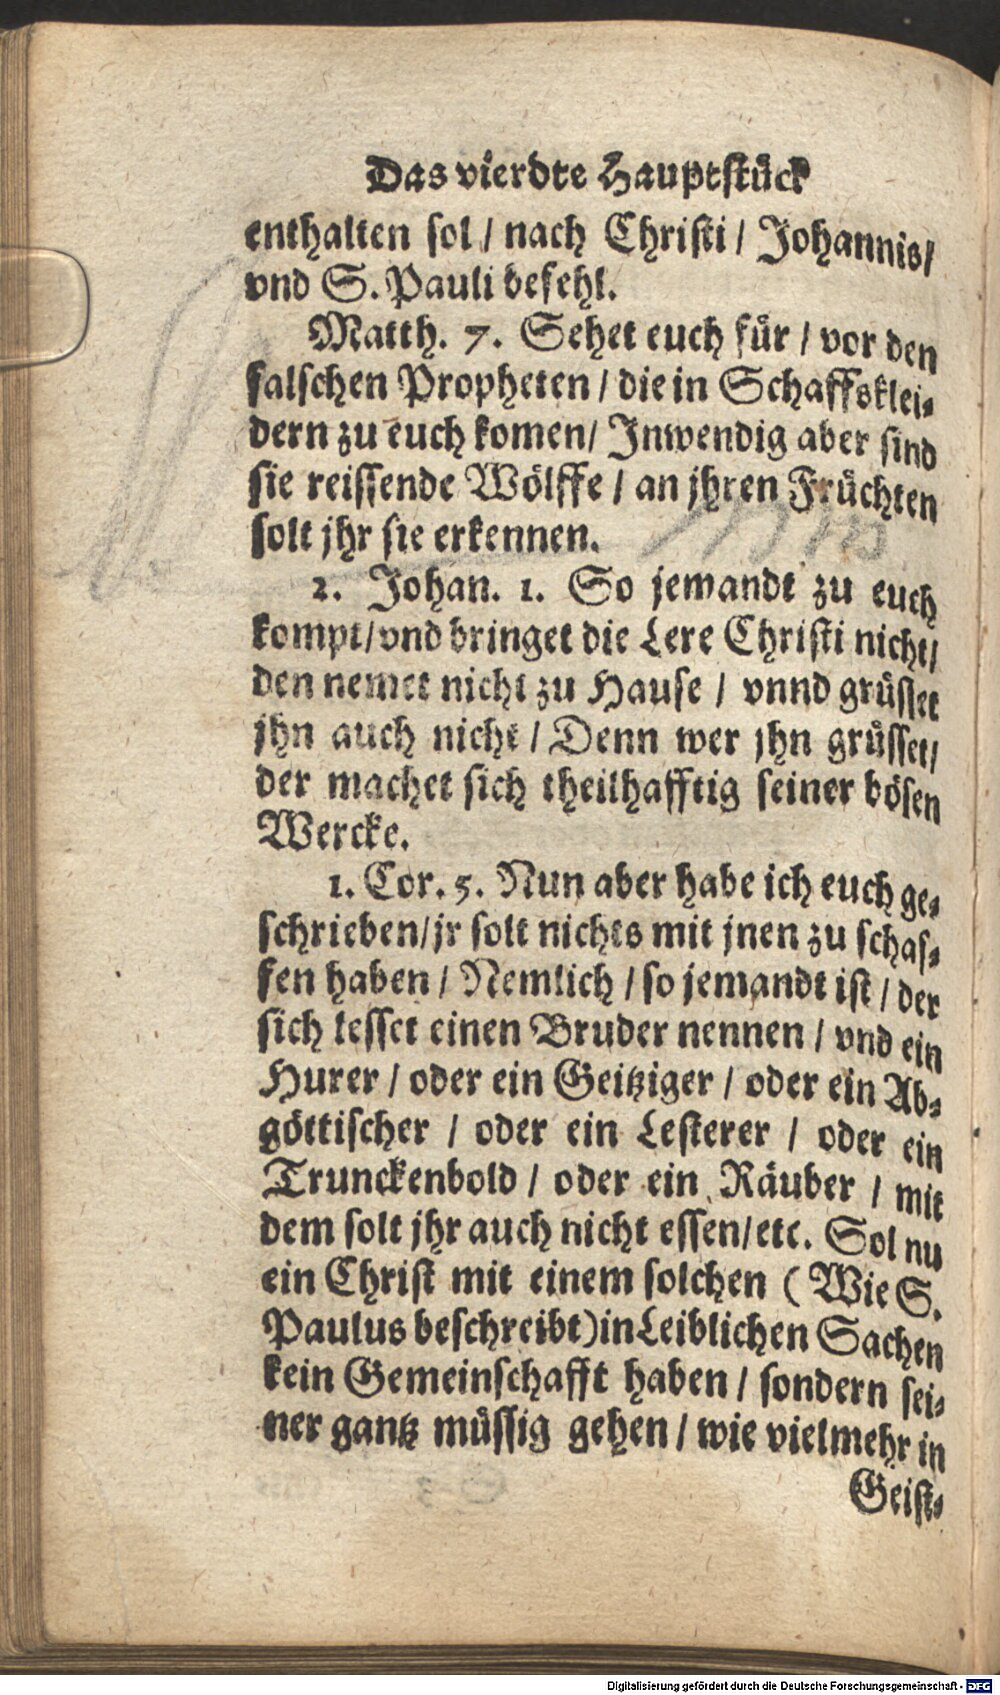 Das vierdte Hauptstück
enthalten sol / nach Christi / Johannis/
vnd S. Pauli befehl.
Matth. 7. Sehet euch für / vor den
falschen Propheten / die in Schaffsklei-
dern zu euch komen/ Inwendig aber sind
sie reissende Wölffe / an jhren Früchten
solt jhr sie erkennen.
2. Johan. 1. So jemandt zu euch
kompt/vnd bringet die Lere Christi nicht/
den nemet nicht zu Hause / vnnd grüsset
jhn auch nicht / Denn wer jhn grüsset/
der machet sich theilhafftig seiner bösen
Wercke.
1. Cor. 5. Nun aber habe ich euch ge-
schrieben/jr solt nichts mit jnen zu schaf-
fen haben / Nemlich / so jemandt ist / der
sich lesset einen Bruder nennen / vnd ein
Hurer / oder ein Geitziger / oder ein Ab-
göttischer / oder ein Lesterer / oder ein
Trunckenbold / oder ein Räuber / mit
dem solt jhr auch nicht essen/etc. Sol nu
ein Christ mit einem solchen ( Wie S.
Paulus beschreibt)in Leiblichen Sachen
kein Gemeinschafft haben / sondern sei-
ner gantz müssig gehen / wie vielmehr in
Geist-
Digitalisierung gefördert durch die Deutsche Forschungsgemeinschaft - DFG